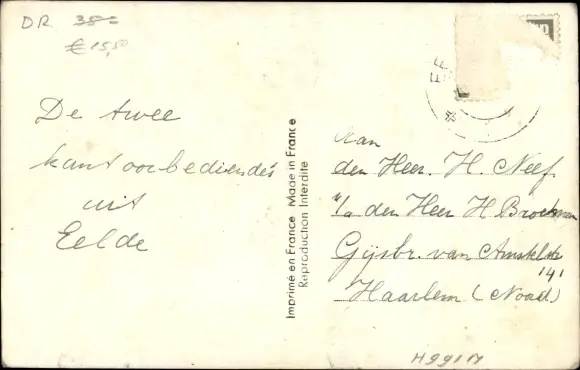 DR 35=
€15,50
De twee
kantoorbediendes
uit
Eelde
Imprimé en France Made in France
Reproduction Interdite
Aan
den Heer. H. Neef.
p/a den Heer H Broekman
Gijsbr. van Amstelstr
141
Haarlem (Noord)
H991M